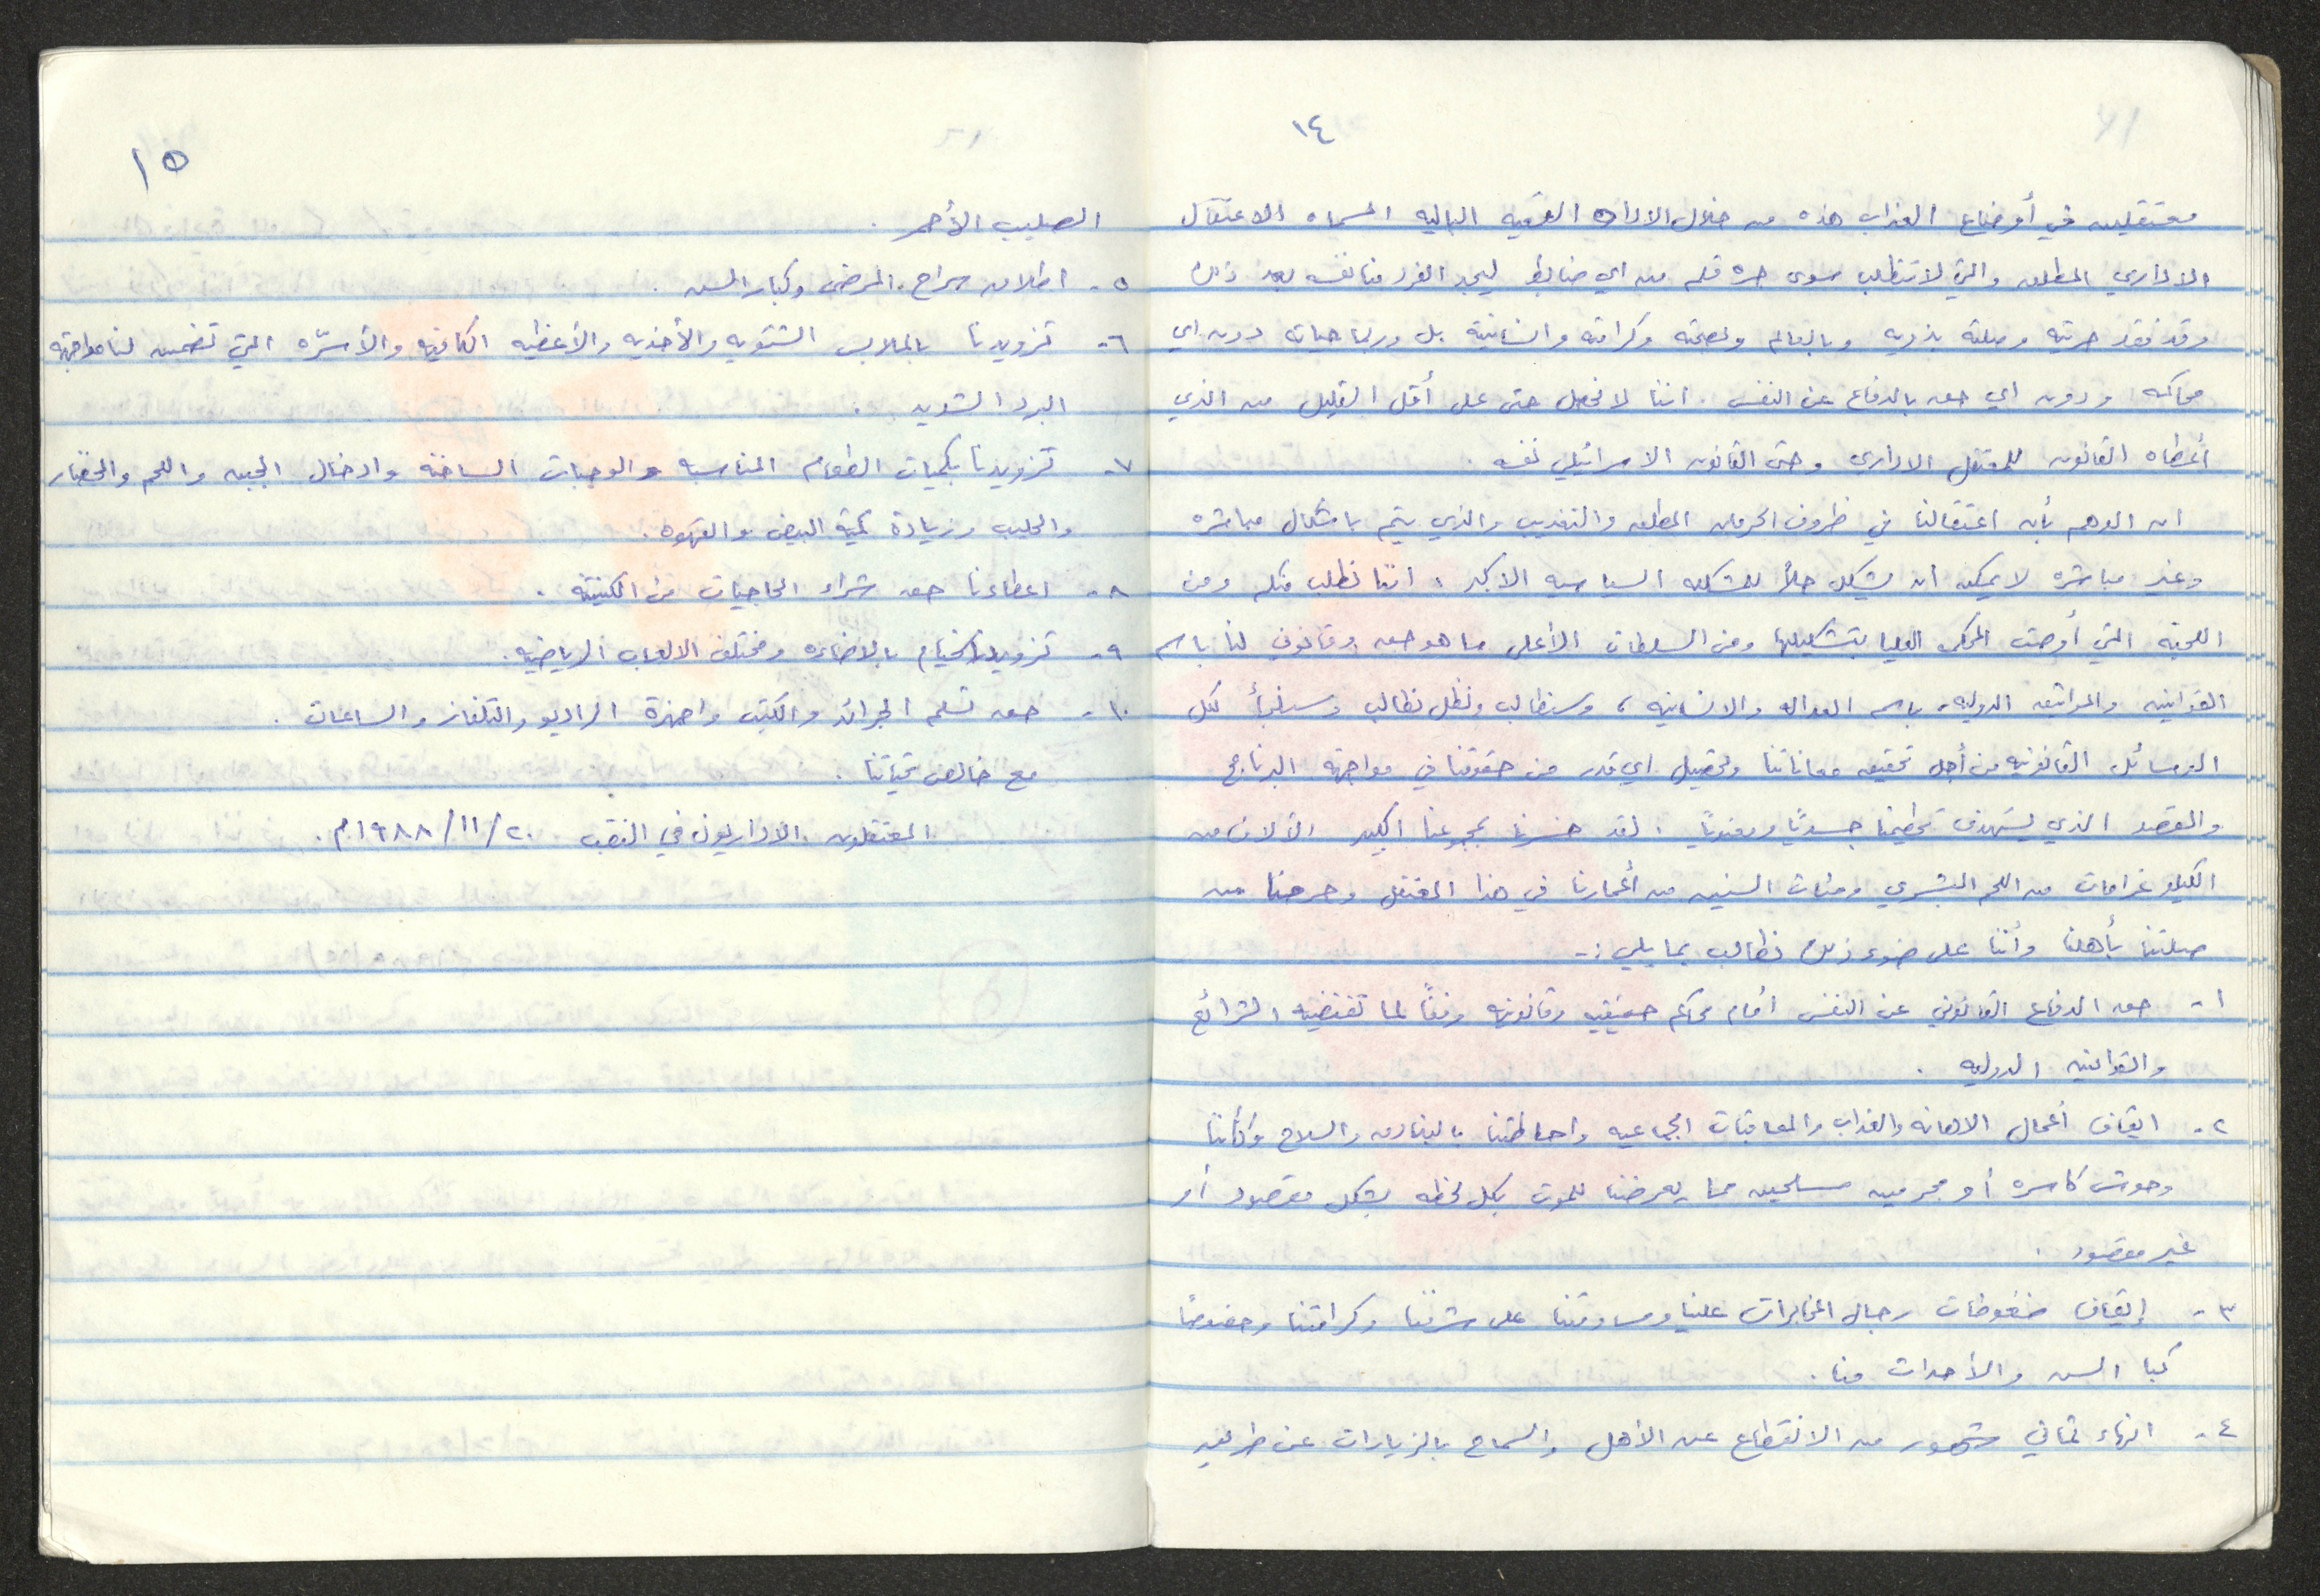 ١٤
معتقلين في أوضاع العذاب هذه من خلال الاداه القمعيه الباليه المسماه الاعتقال
الاداري المطلق والتي لا تتطلب سوى جره قلم من اي ضابط ليجد الفرد منا نفسه بعد ذلك
وقد فقد حريته وصلته بذويه وبالعالم وصحته وكرامته وانسانيته بل وربما حياته دون اي
محاكمه ودون اي حق بالدفاع عن النفس . اننا لا نحصل حتى على أقل القليل من الذي
أعطاه القانون للمعتقل الاداري وحتى القانون الاسرائيلي نفسه .
ان الوهم بأن اعتقالنا في ظروف الحرمان المطلق والتعذيب والذي يتم باشكال مباشره
وغير مباشره لا يمكن ان يشكل حلاً للمشكله السياسيه الاكبر ، اننا نطلب منكم ومن
اللجنه التي أوصت المحكمه العليا بتشكيلها ومن السلطات الأعلى ما هو حق وقانوني لنا باسم
القوانين والمواثيق الدوليه ، باسم العداله والانسانيه ، وسنطالب ونظل نطالب وسنلجأ لكل
الوسائل القانونيه من أجل تخفيف معاناتنا وتحصيل اي قدر من حقوقنا في مواجهة البرنامج
والقصد الذي يستهدف تحطيمنا جسدياً ومعنوياً . لقد خسرنا بمجموعنا الكبير الآلاف من
الكيلو غرامات من اللحم البشري ومئات السنين من أعمارنا في هذا المعتقل وحرمنا من
صلتنا بأهلنا وأننا على ضوء ذلك نطالب بما يلي :-
١- حق الدفاع القانوني عن النفس أمام محاكم حقيقيه وقانونيه وفقاً لما تقتضيه الشرائع
والقوانين الدوليه .
٢- ايقاف أعمال الاهانه والعذاب والمعاقبات الجماعيه واحاطتنا بالبنادق والسلاح وكأننا
وحوش كاسره أو مجرمين مسلحين مما يعرضنا للموت بكل لحظه بشكل مقصود أو
غير مقصود .
٣- إيقاف ضغوطات رجال المخابرات علينا ومساومتنا على شرفنا وكرامتنا وخصوصاً
كبا السن والأحداث منا .
٤- انهاء ثماني شهور من الانقطاع عن الأهل والسماح بالزيارات عن طريق
١٥
الصليب الأحمر .
٥- اطلاق سراح المرضى وكبار السن .
٦- تزويدنا بالملابس الشتويه والأحذيه والأغطيه الكافيه والأسرّه التي تضمن لنا مواجهة
البرد الشديد .
٧- تزويدنا بكميات الطعام المناسبه والوجبات الساخنه وادخال الجبن واللحم والخضار
والحليب وزيادة كمية البيض والقهوه .
٨- اعطاءنا حق شراء الحاجيات من الكنتينه .
٩- تزويد الخيام بالاضاءه ومختلف الالعاب الرياضيه .
١٠- حق تسلم الجرائد والكتب واجهزة الراديو والتلفاز والساعات .
مع خالص تحياتنا .
المعتقلون الاداريون في النقب ٢٠/١١/١٩٨٨م .